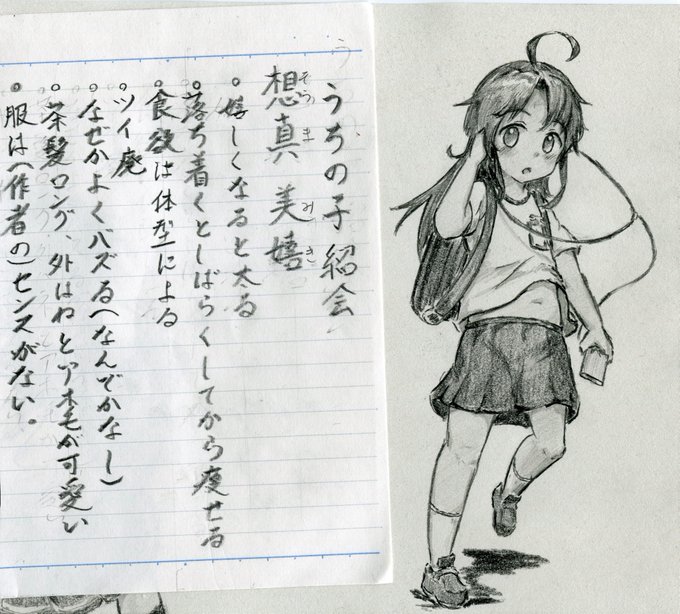 うちの子紹会
想真 美嬉
そうま みき
・嬉しくなると太る
・落ち着くとしばらくしてから痩せる
・食欲は体型による
・ツイ廃
・なぜかよくバズる(なんでかなし)
・茶髪ロング、外はねとアホ毛が可愛い
・服は(作者の)センスがない。